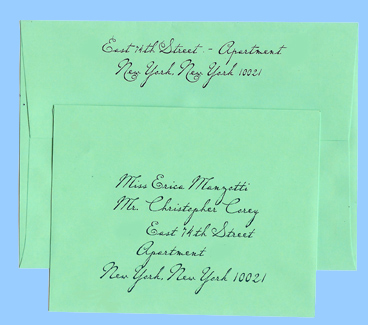 East 74th Street - Apartment
New York, New York 10021
Miss Erica Manzotti
Mr. Christopher Corey
East 74th Street
Apartment
New York, New York 10021